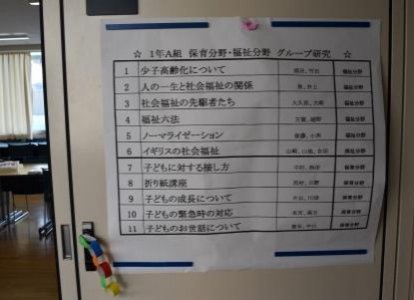 ☆ 1年A組 保育分野・福祉分野 グループ研究 ☆
1 少子高齢化について 福祉分野
2 人の一生と社会福祉の関係 福祉分野
3 社会福祉の先駆者たち 福祉分野
4 福祉六法 福祉分野
5 ノーマライゼーション 福祉分野
6 イギリスの社会福祉 福祉分野
7 子どもに対する接し方 保育分野
8 折り紙講座 保育分野
9 子どもの成長について 保育分野
10 子どもの緊急時の対応 保育分野
11 子どものお世話について 保育分野